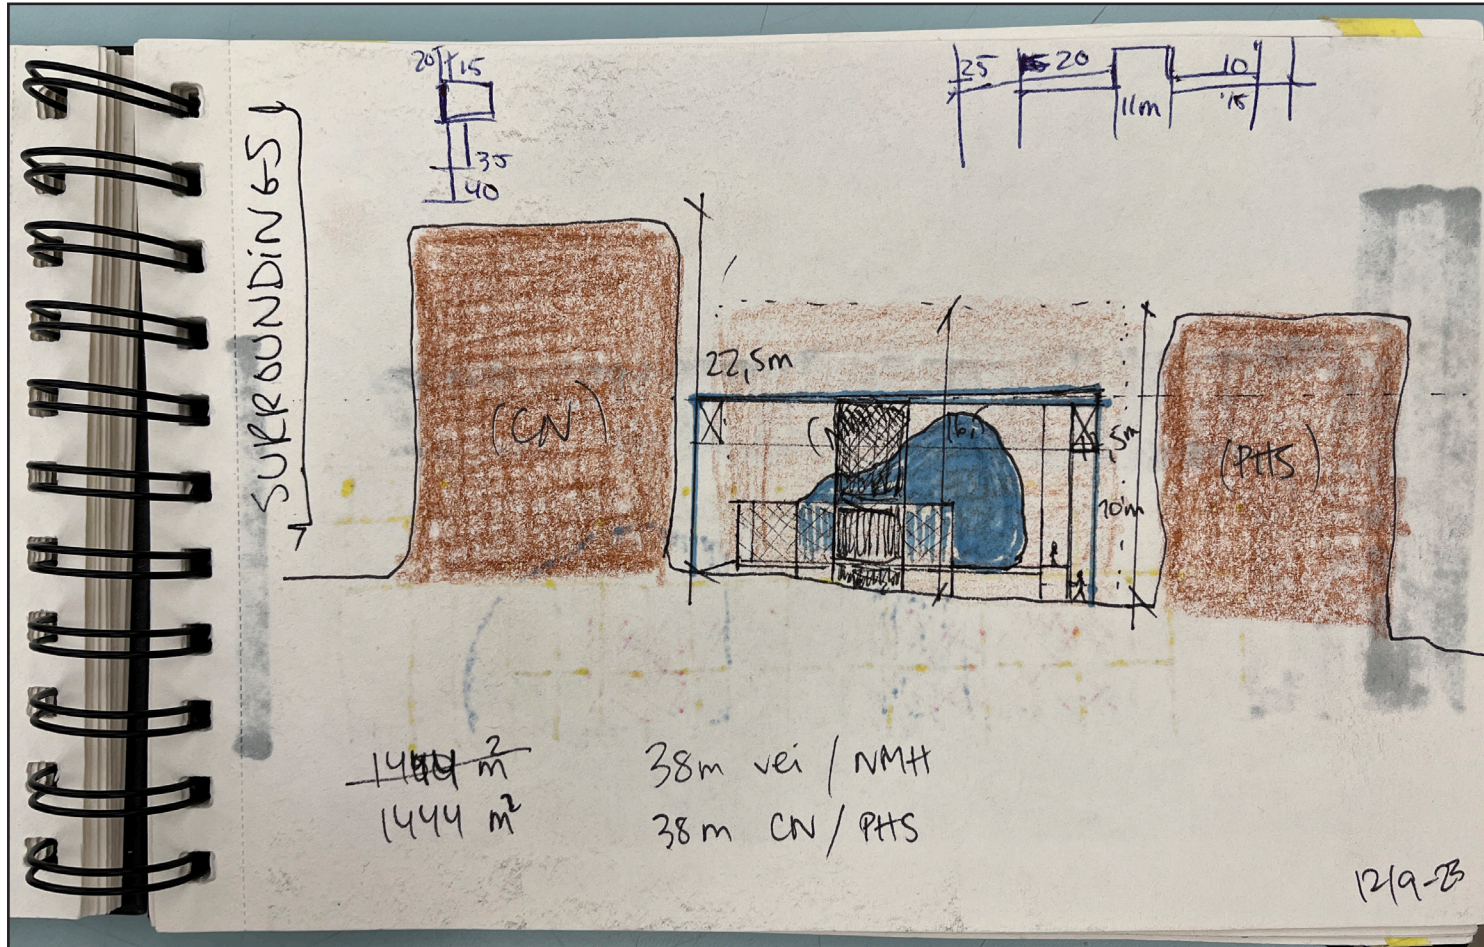 SURROUNDINGS
20 15
35
40
25 20 10
11m 15
22,5m
(CN)
(PHS)
10m
1444 m²
1444 m²
38m vei / NMH
38m CN / PHS
12/9-23